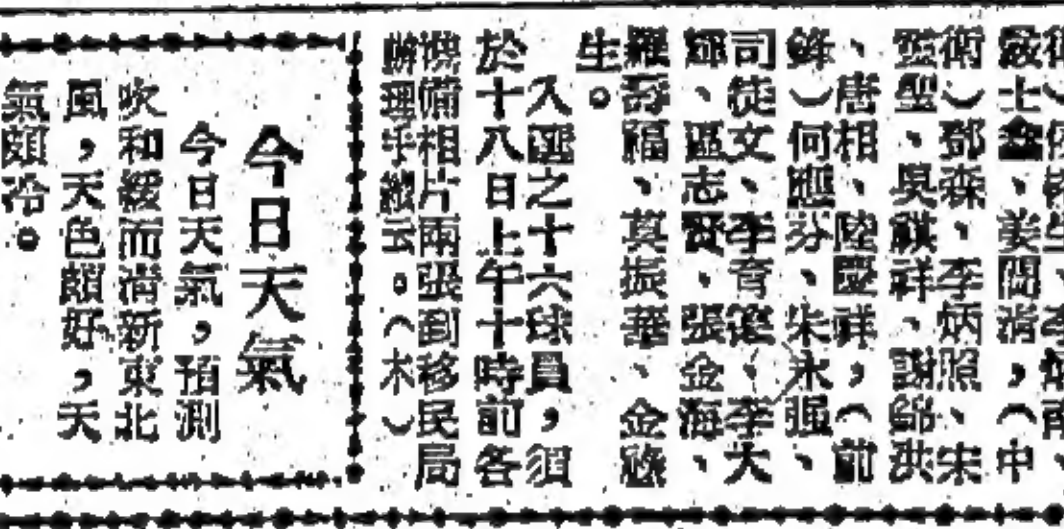 嚴士鑫、姜閏消,(中
衛)鄧森、李炳照、宋
監聖、吳麒祥、謝錦洪
、唐相、陸慶祥,(前
鋒)何應芬、朱永强、
司徒文、李育德、李大
輝、區志賢、張金海、
羅壽福、莫振華、金政
生。
入選之十六球員,須
於十八日上午十時前各
携備相片兩張到移民局
辦理手續云。(木)
今日天氣
今日天氣,預測
吹和緩而清新東北
風,天色頗好,天
氣頗冷。